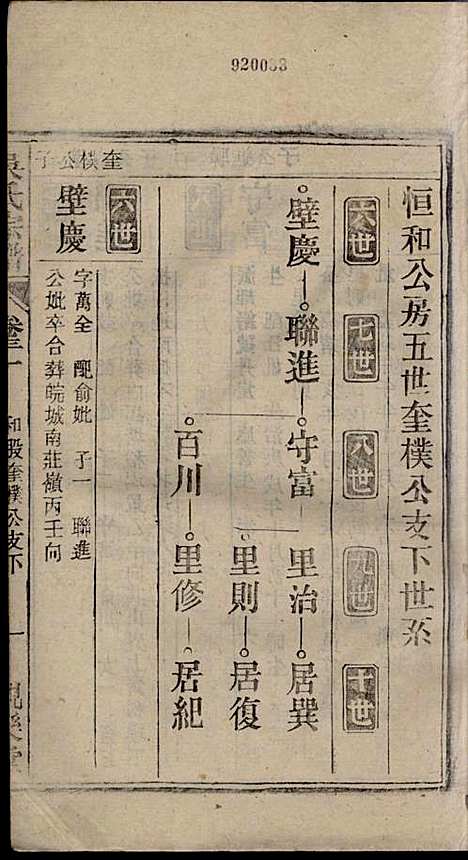 920033
恒和公房五世奎樸公支下世系
六世 七世 八世 九世 十世
壁慶 聯進 守富 里治 居巽
里則 居復
百川 里修 居紀
六世
奎樸公子
壁慶
字萬全 配俞妣 子一 聯進
公妣卒合葬皖城南莊嶺丙壬向
吳氏宗譜
卷三
和股奎樸公支下
一